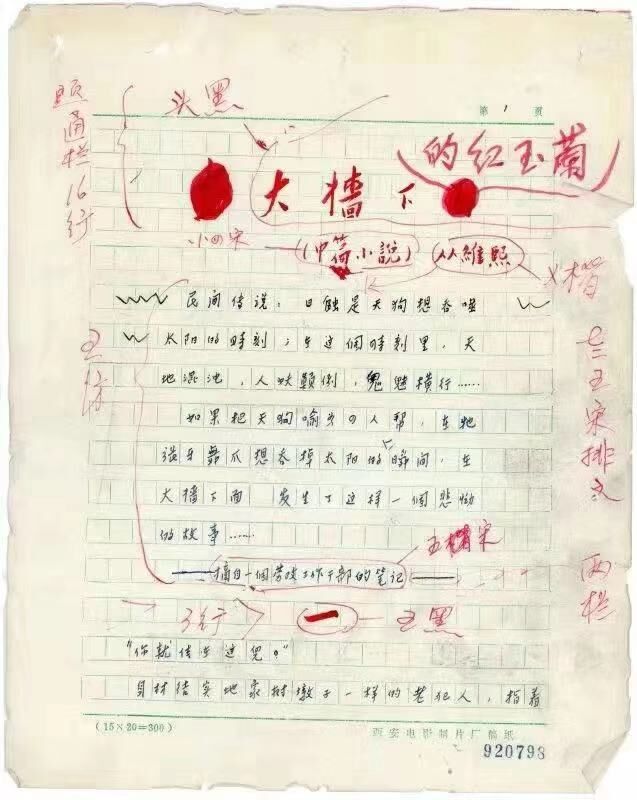 第 1 页
头黑
题通栏16行
大墙下的红玉兰
小四宋
(中篇小說) 从維熙
×楷
民间传说：日蚀是天狗想吞噬
太阳的時刻；在这個時刻里，天
地混沌，人妖顛倒，鬼魅横行……
如果把天狗喻为四人帮，在牠
張牙舞爪想吞掉太阳的瞬间，在
大墙下面 发生了这样一個悲恸
的故事……
——摘自一個劳改工作干部的笔记——
五楷
五仿
五宋排文 两栏
3行
一
五黑
“你就住在这兒。”
身材结实地象树墩子一样的老犯人，指着
(15×20=300)
西安电影制片厂稿纸
920798